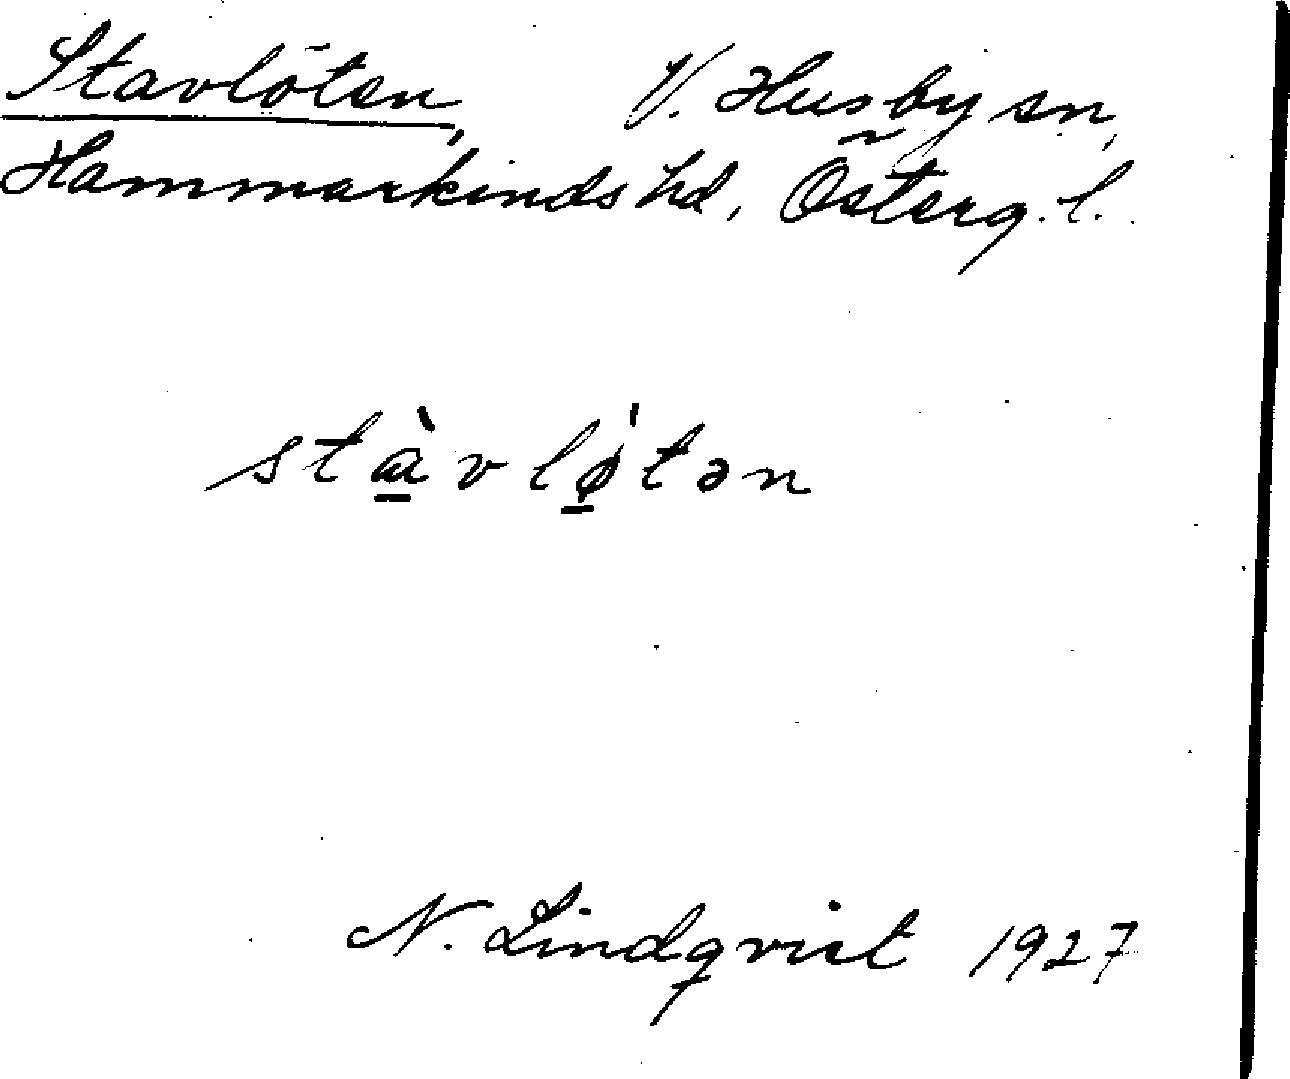 Stavlöten, V. Husby sn,
Hammarkinds hd, Österg. l.
stàvlø̍tən
N. Lindqvist 1927